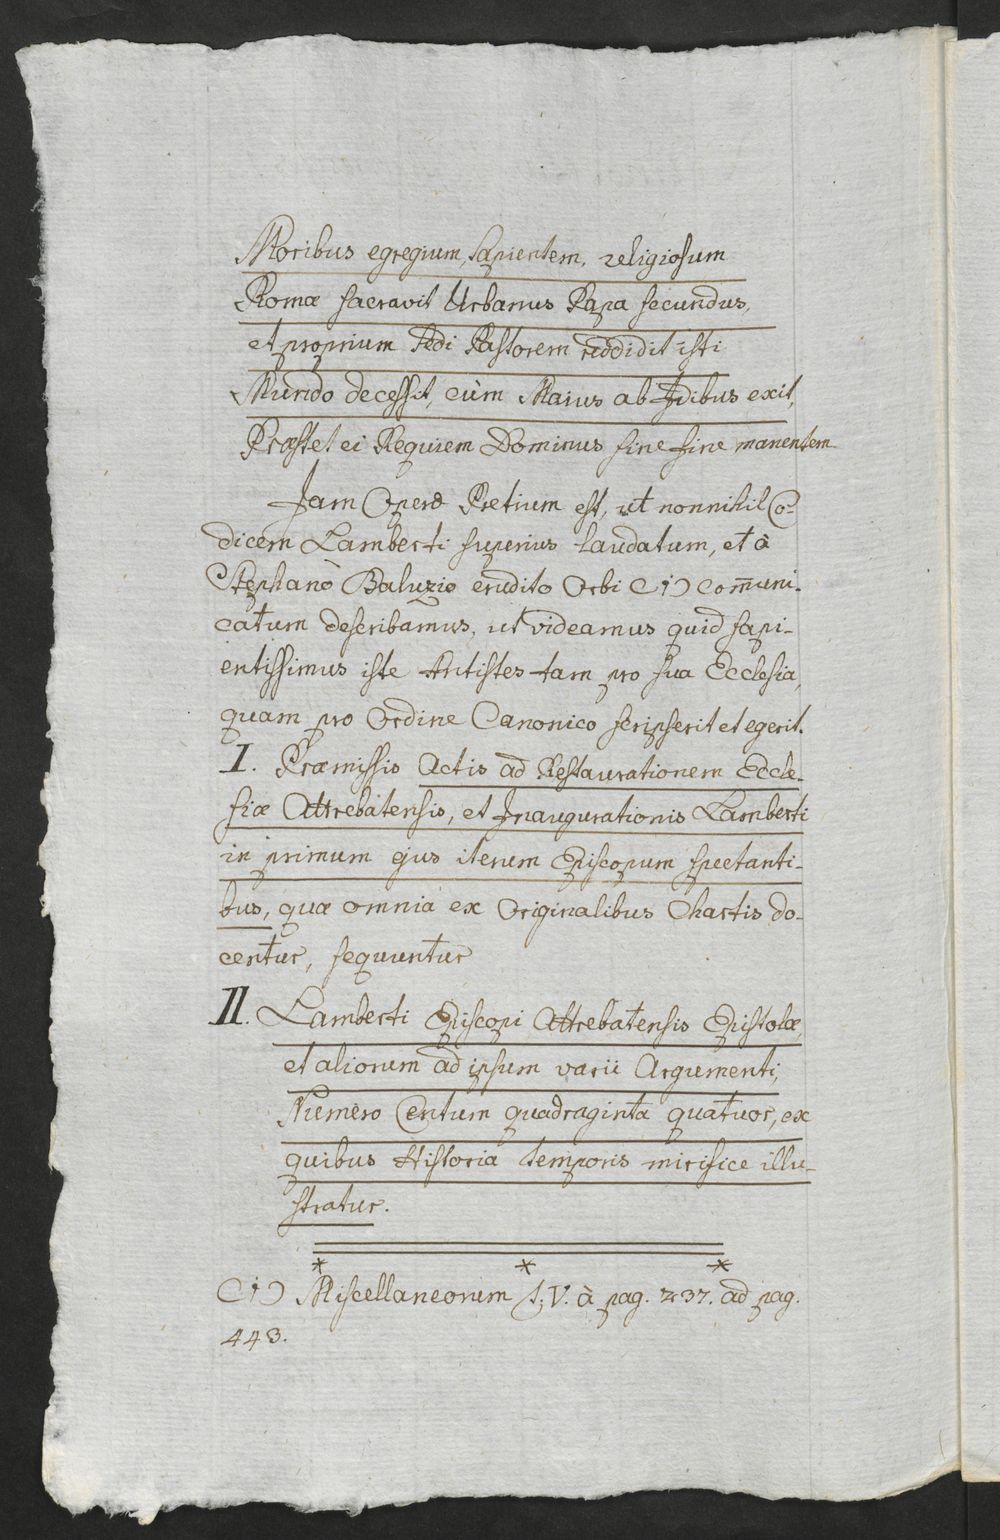 Moribus egregium, Sapientem, religiosum
Romæ sacravit Urbanus Papa secundus,
et proprium Sedi Pastorem reddidit isti
Mundo decessit, cùm Maius ab Idibus exit,
Præstet ei Requiem Dominus sine fine manentem
Jam Operæ Pretium est, ut nonnihil Co-
dicem Lamberti superius laudatum, et à
Stephano Baluzio erudito Orbi (1) com̄uni-
catum describamus, ut videamus quid sapi-
entissimus iste Antistes tam pro sua Ecclesia,
quam pro Ordine Canonico scripserit et egerit.
I. Præmissis Actis ad Restaurationem Eccle-
siæ Attrebatensis, et Inaugurationis Lamberti
in primum ejus iterum Episcopum spectanti-
bus, quæ omnia ex Originalibus Chartis do-
centur, sequuntur
II. Lamberti Episcopi Attrebatensis Epistolæ,
et aliorum ad ipsum varii Argumenti,
Numero Centum quadraginta quatuor, ex
quibus Historia temporis mirifice illu-
stratur.
* * *
(1) Miscellaneorum t. V. à pag. 237. ad pag.
443.